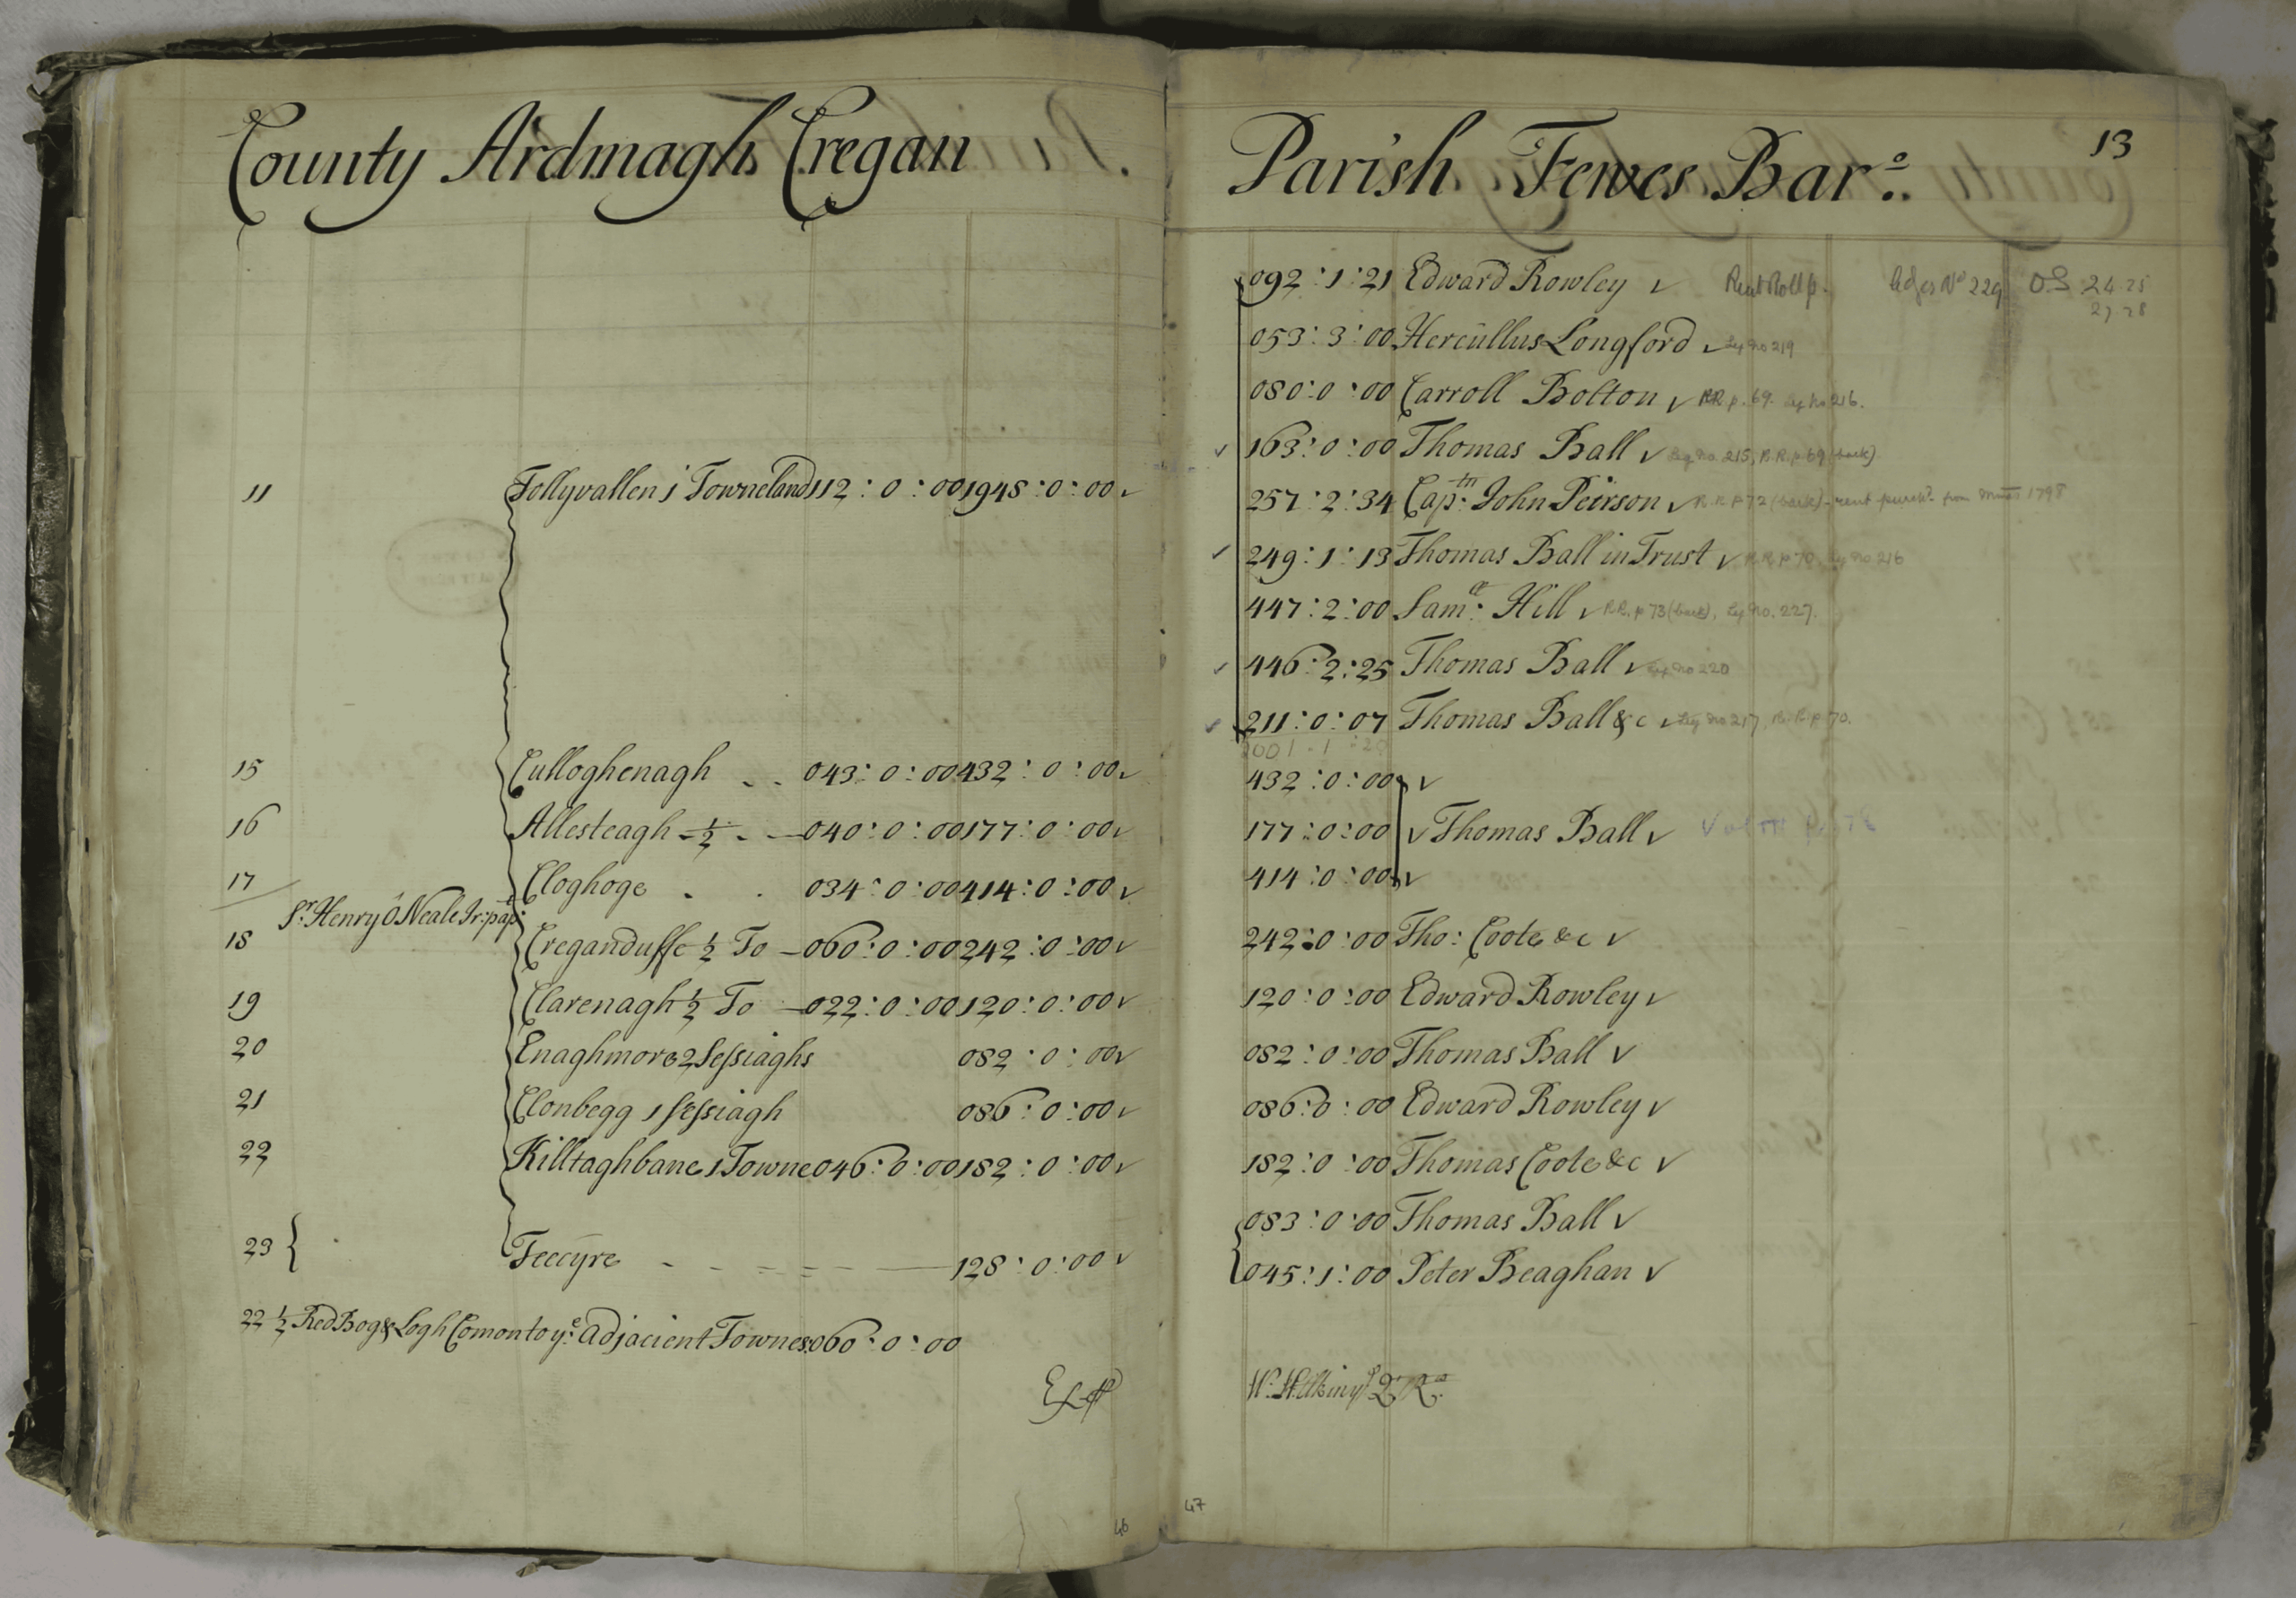 County Ardmagh Cregan
11 Tollyvallen 1 Towneland 112 : 0 : 00 1948 : 0 : 00 v
15 Culloghenagh . . 043 : 0 : 00 432 : 0 : 00 v
16 Allesteagh - 1/2 - 040 : 0 : 00 177 : 0 : 00 v
17 Cloghoge . . 034 : 0 : 00 414 : 0 : 00 v
Sr. Henry O Neale Ir: papt:
18 Creganduffe 1/2 To - 060 : 0 : 00 242 : 0 : 00 v
19 Clarenagh 1/2 To - 022 : 0 : 00 120 : 0 : 00 v
20 Enaghmore 2 Sessiaghs 082 : 0 : 00 v
21 Clonbegg 1 sessiagh 086 : 0 : 00 v
22 Killtaghbane 1 Towne 046 : 0 : 00 182 : 0 : 00 v
23 { Feecyre - - - - - 128 : 0 : 00 v
22 1/2 Red Bog & Logh Comon to ye: Adjacient Townes 060 : 0 : 00
46
Parish Fewes Baro.
13
092 : 1 : 21 Edward Rowley v Rent Roll p. No 229 O.S 24.25
27 28
053 : 3 : 00 Hercullus Longford v Leg no 219
080 : 0 : 00 Carroll Bolton v R.R. p. 69. Leg no 216.
v 163 : 0 : 00 Thomas Ball v Leg no. 215, R.R. p. 69 (back)
257 : 2 : 34 Captn: John Peirson v R.R. p 72 (back) - rent purchd. from 1798
v 249 : 1 : 13 Thomas Ball in Trust v R.R. p 70, Leg no 216
447 : 2 : 00 Samll: Hill v R.R. p 73 (back), Leg no. 227.
v 446 : 2 : 25 Thomas Ball v Leg no 220
v 211 : 0 : 07 Thomas Ball &c v Leg no 217, R.R. p 70.
2001 . 1 : 20
432 : 0 : 00 v
177 : 0 : 00 v Thomas Ball v
414 : 0 : 00 v
242 : 0 : 00 Tho: Coote &c v
120 : 0 : 00 Edward Rowley v
082 : 0 : 00 Thomas Ball v
086 : 0 : 00 Edward Rowley v
182 : 0 : 00 Thomas Coote &c v
083 : 0 : 00 Thomas Ball v
045 : 1 : 00 Peter Beaghan v
47